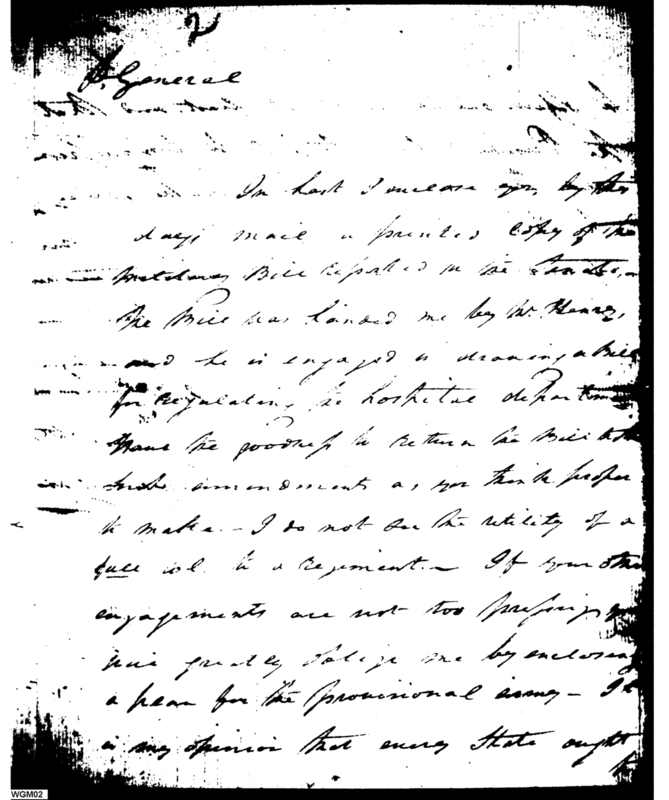 2
General
In hast I enclose you by this
days mail a printed Copy of the
Military Bill reported in the Senate,
the Bill was handed me by Mr Henry,
and he is engaged in drawing a Bill
for regulating the hospital department
have the goodness to return the Bill with
such amendments as you think proper
to make. - I do not see the utility of a
full col. to a regiment. - If your other
engagements are not too pressing you
will greatly oblige me by enclosing
a plan for the provisional army - It
is my opinion that every State ought
to
WGM02